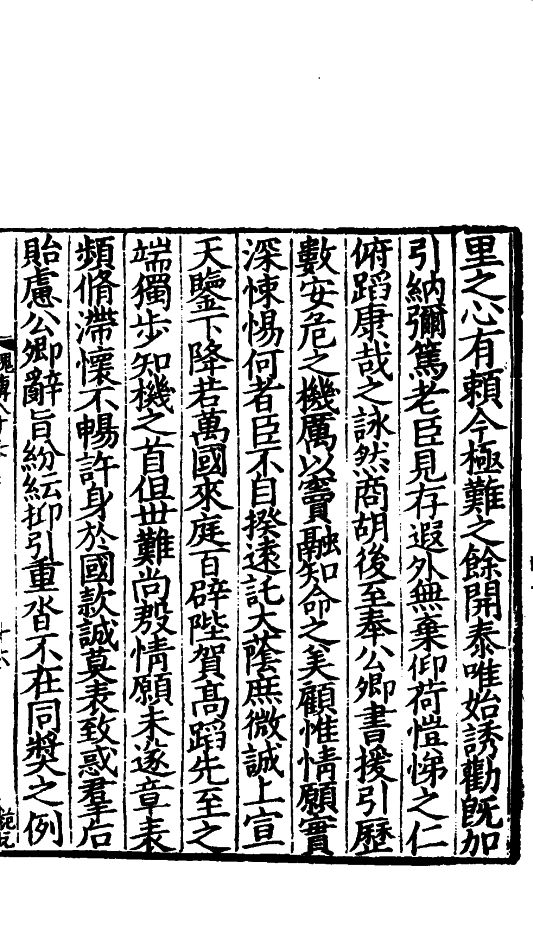 里之心有賴今極難之餘開泰唯始誘勸既加
引納彌篤老臣見存遐外無棄仰荷愷悌之仁
俯蹈康哉之詠然商胡後至奉公卿書援引歷
數安危之機厲以竇融知命之美顧惟情願實
深悚惕何者臣不自揆遠託大蔭庶微誠上宣
天鑒下降若萬國來庭百辟陛賀高蹈先至之
端獨步知機之首但世難尚殷情願未遂章表
頻脩滯懷不暢許身於國款誠莫表致惑羣后
貽慮公卿辭旨紛紜抑引重沓不在同奬之例